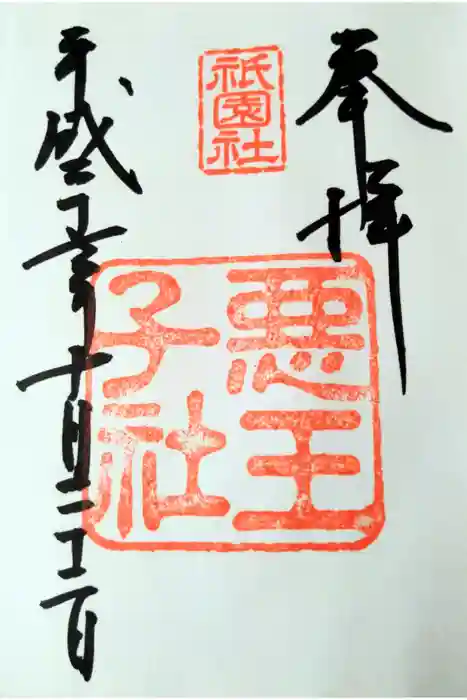 奉拝
祇園社
悪王
子社
平成 年十月二十 日